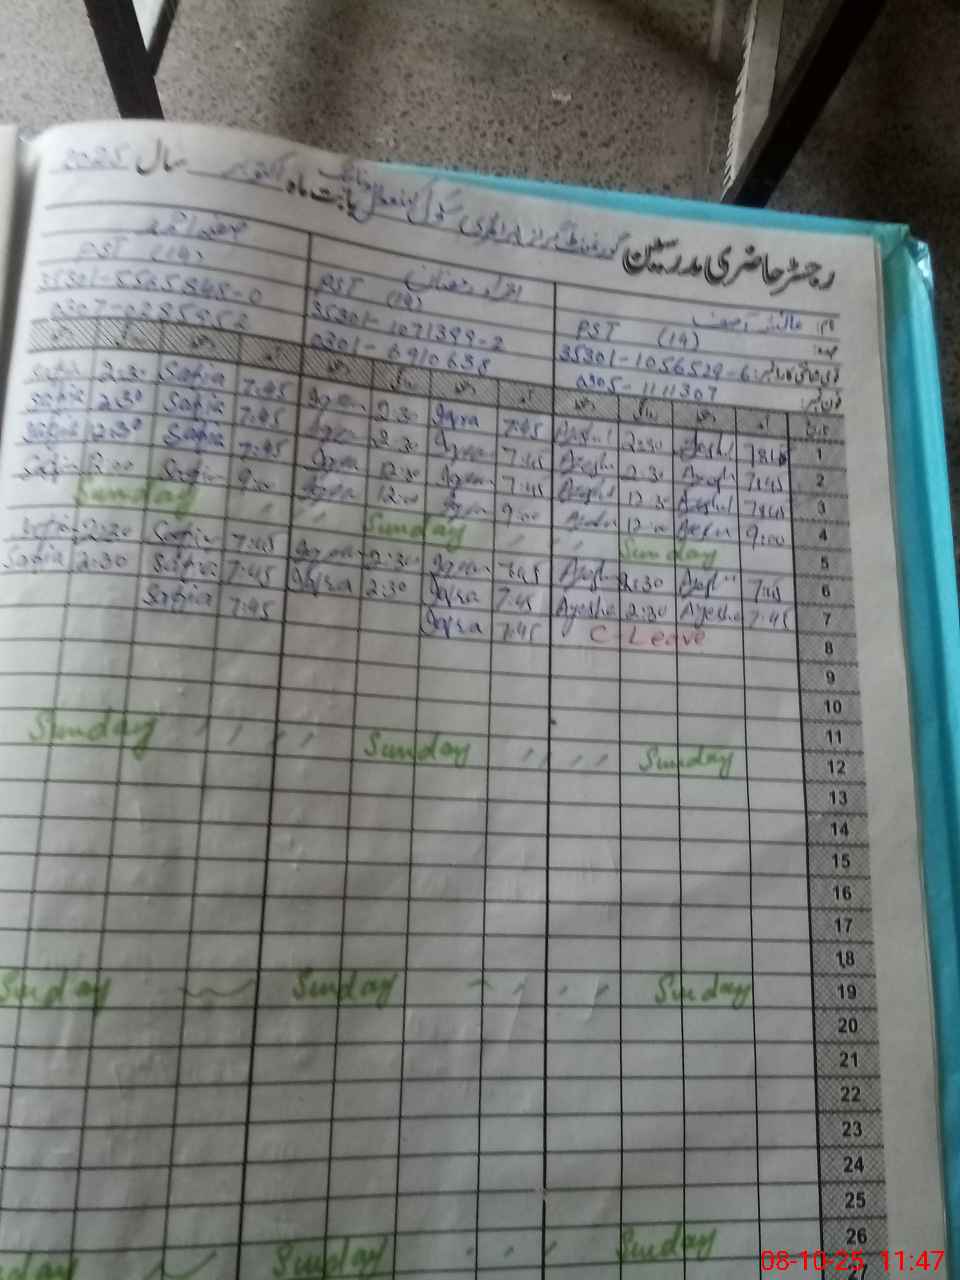 رجسٹر حاضری مدرسین گورنمنٹ گرلز پرائمری سکول بابت ماہ اکتوبر سال 2025
نام: عائشہ آصف
PST (14)
35301-1056529-6
0305-1111307
PST (14)
35301-1071399-2
0301-6910638
PST (14)
35301-5565848-0
0307-0285952
1 7:45 Ayesha 2:30 Ayesha 7:45 Iqra 2:30 Iqra 7:45 Safia 2:30 Safia
2 7:45 Ayesha 2:30 Ayesha 7:45 Iqra 2:30 Iqra 7:45 Safia 2:30 Safia
3 7:45 Ayesha 12:30 Ayesha 7:45 Iqra 12:30 Iqra 7:45 Safia 12:30 Safia
4 9:00 Ayesha 12:00 Ayesha 9:00 Iqra 12:00 Iqra 9:00 Safia 12:00 Safia
5 Sunday Sunday Sunday
6 7:45 Ayesha 2:30 Ayesha 7:45 Iqra 2:30 Iqra 7:45 Safia 2:30 Safia
7 7:45 Ayesha 2:30 Ayesha 7:45 Iqra 2:30 Iqra 7:45 Safia 2:30 Safia
8 C Leave 7:45 Iqra 7:45 Safia
9
10
11
12 Sunday Sunday Sunday
13
14
15
16
17
18
19 Sunday Sunday Sunday
20
21
22
23
24
25
26 Sunday Sunday
08-10-25 11:47